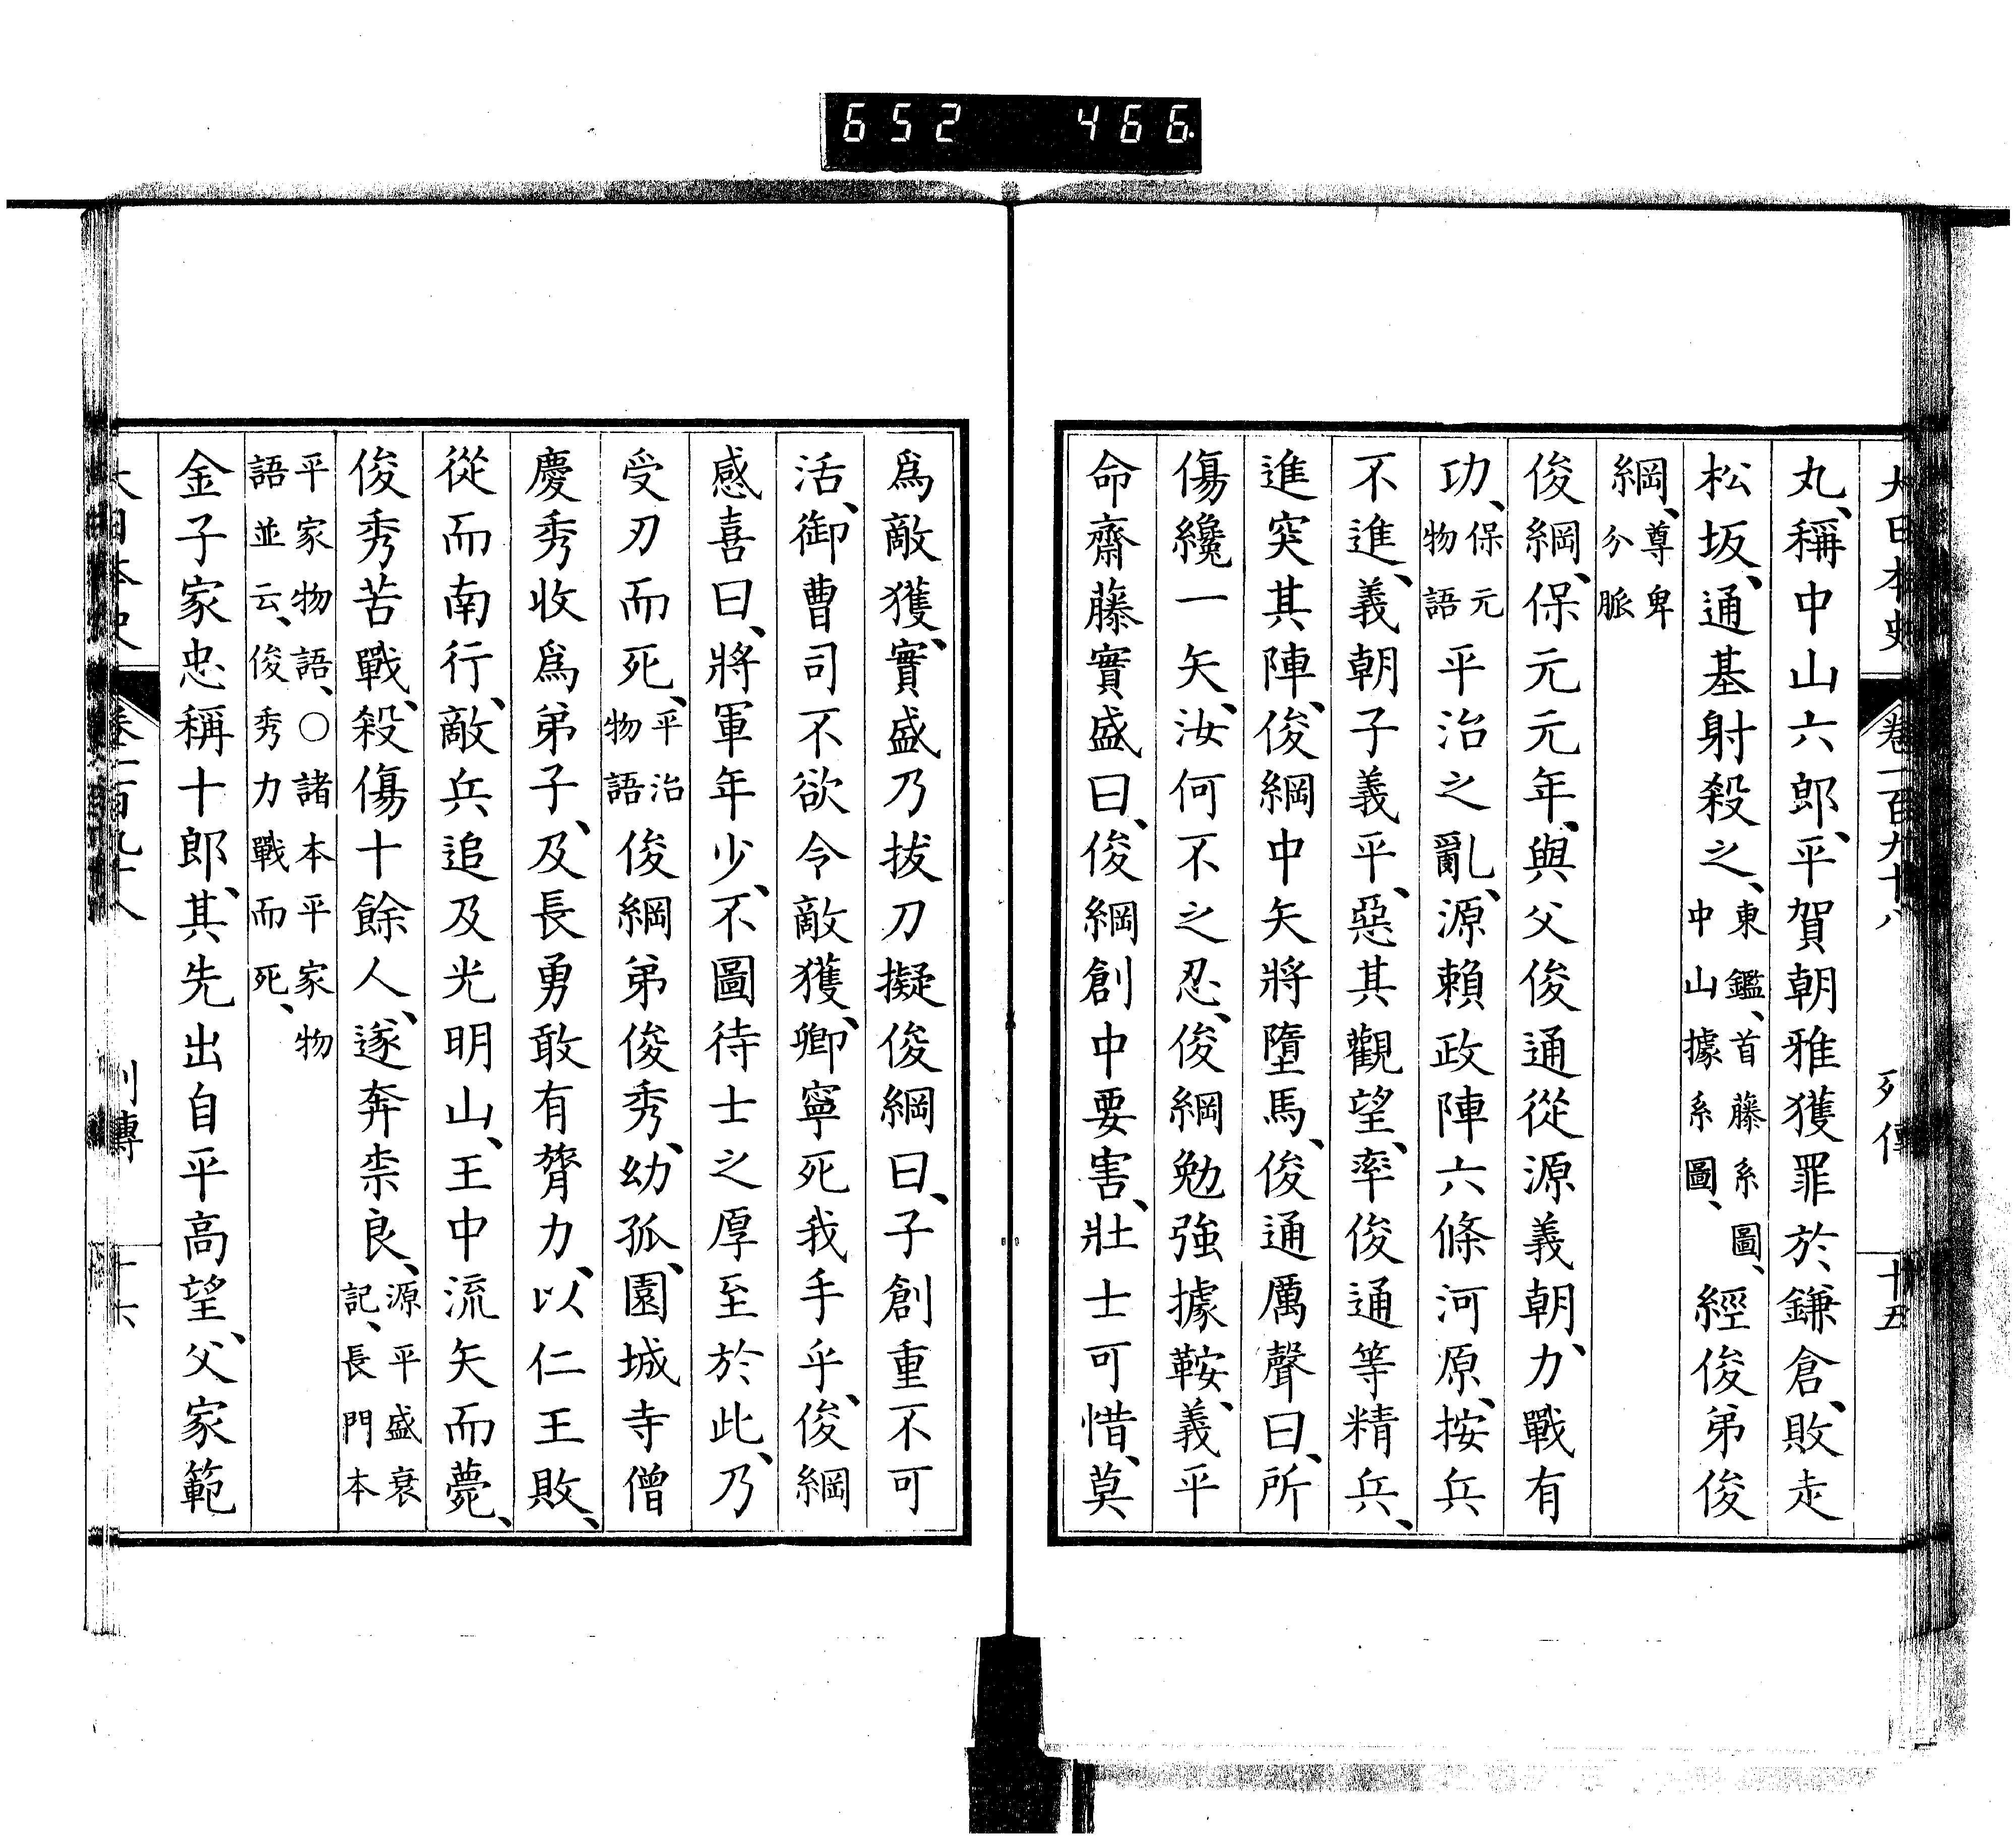 652 466
大日本史 卷一百九十八 列傳 十五
丸、稱中山六郎、平賀朝雅獲罪於鎌倉、敗走
松坂、通基射殺之、東鑑、首藤系圖、中山據系圖、經俊弟俊
綱、尊卑分脈
俊綱、保元元年、與父俊通從源義朝、力戰有
功、保元物語平治之亂、源賴政陣六條河原、按兵
不進、義朝子義平、惡其觀望、率俊通等精兵、
進突其陣、俊綱中矢將墮馬、俊通厲聲曰、所
傷纔一矢、汝何不之忍、俊綱勉強據鞍、義平
命齋藤實盛曰、俊綱創中要害、壯士可惜、莫
爲敵獲、實盛乃拔刀擬俊綱曰、子創重不可
活、御曹司不欲令敵獲、卿寧死我手乎、俊綱
感喜曰、將軍年少、不圖待士之厚至於此、乃
受刃而死、平治物語俊綱弟俊秀、幼孤、園城寺僧
慶秀收爲弟子、及長勇敢有膂力、以仁王敗、
從而南行、敵兵追及光明山、王中流矢而薨、
俊秀苦戰、殺傷十餘人、遂奔柰良、源平盛衰記、長門本
平家物語、○諸本平家物語並云、俊秀力戰而死、
金子家忠稱十郎、其先出自平高望、父家範
大日本史 卷一百九十八 列傳 十六